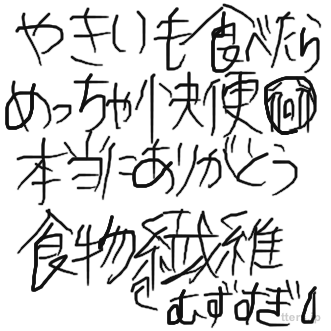 やきいも食べたら
めっちゃ快便
本当にありがとう
食物繊維
むずすぎ